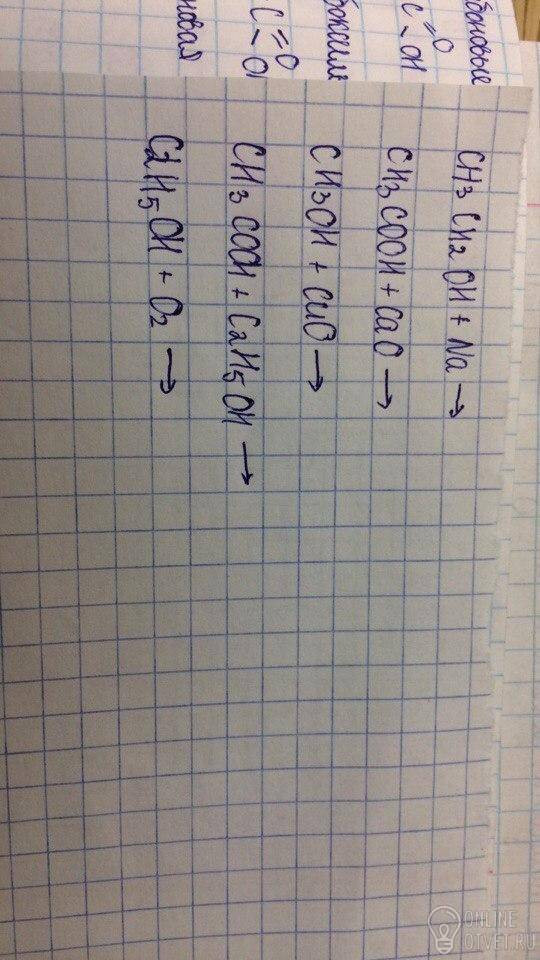 CH3CH2OH + Na →
CH3COOH + CaO →
CH3OH + CuO →
CH3COOH + C2H5OH →
C2H5OH + O2 →
C =O
- OH
C =O
- OH
новая
ONLINE
OTVET.RU